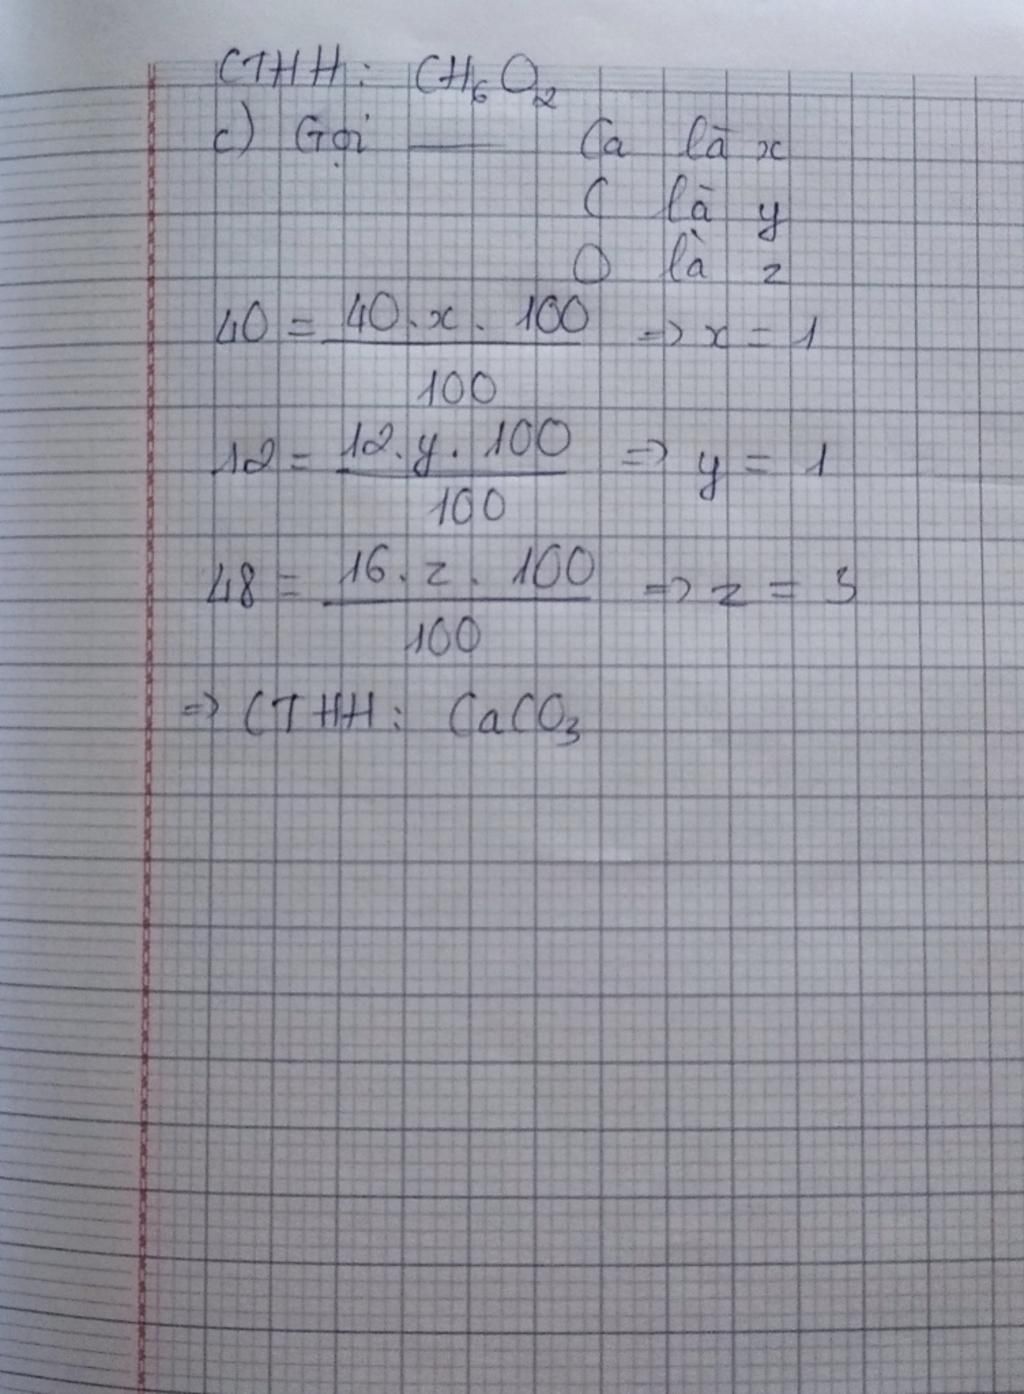 CTHH: CH₆O₂
c) Gọi —— Ca là x
C là y
O là z
40 = 40.x.100/100 => x = 1
12 = 12.y.100/100 => y = 1
48 = 16.z.100/100 => z = 3
=> CTHH: CaCO₃